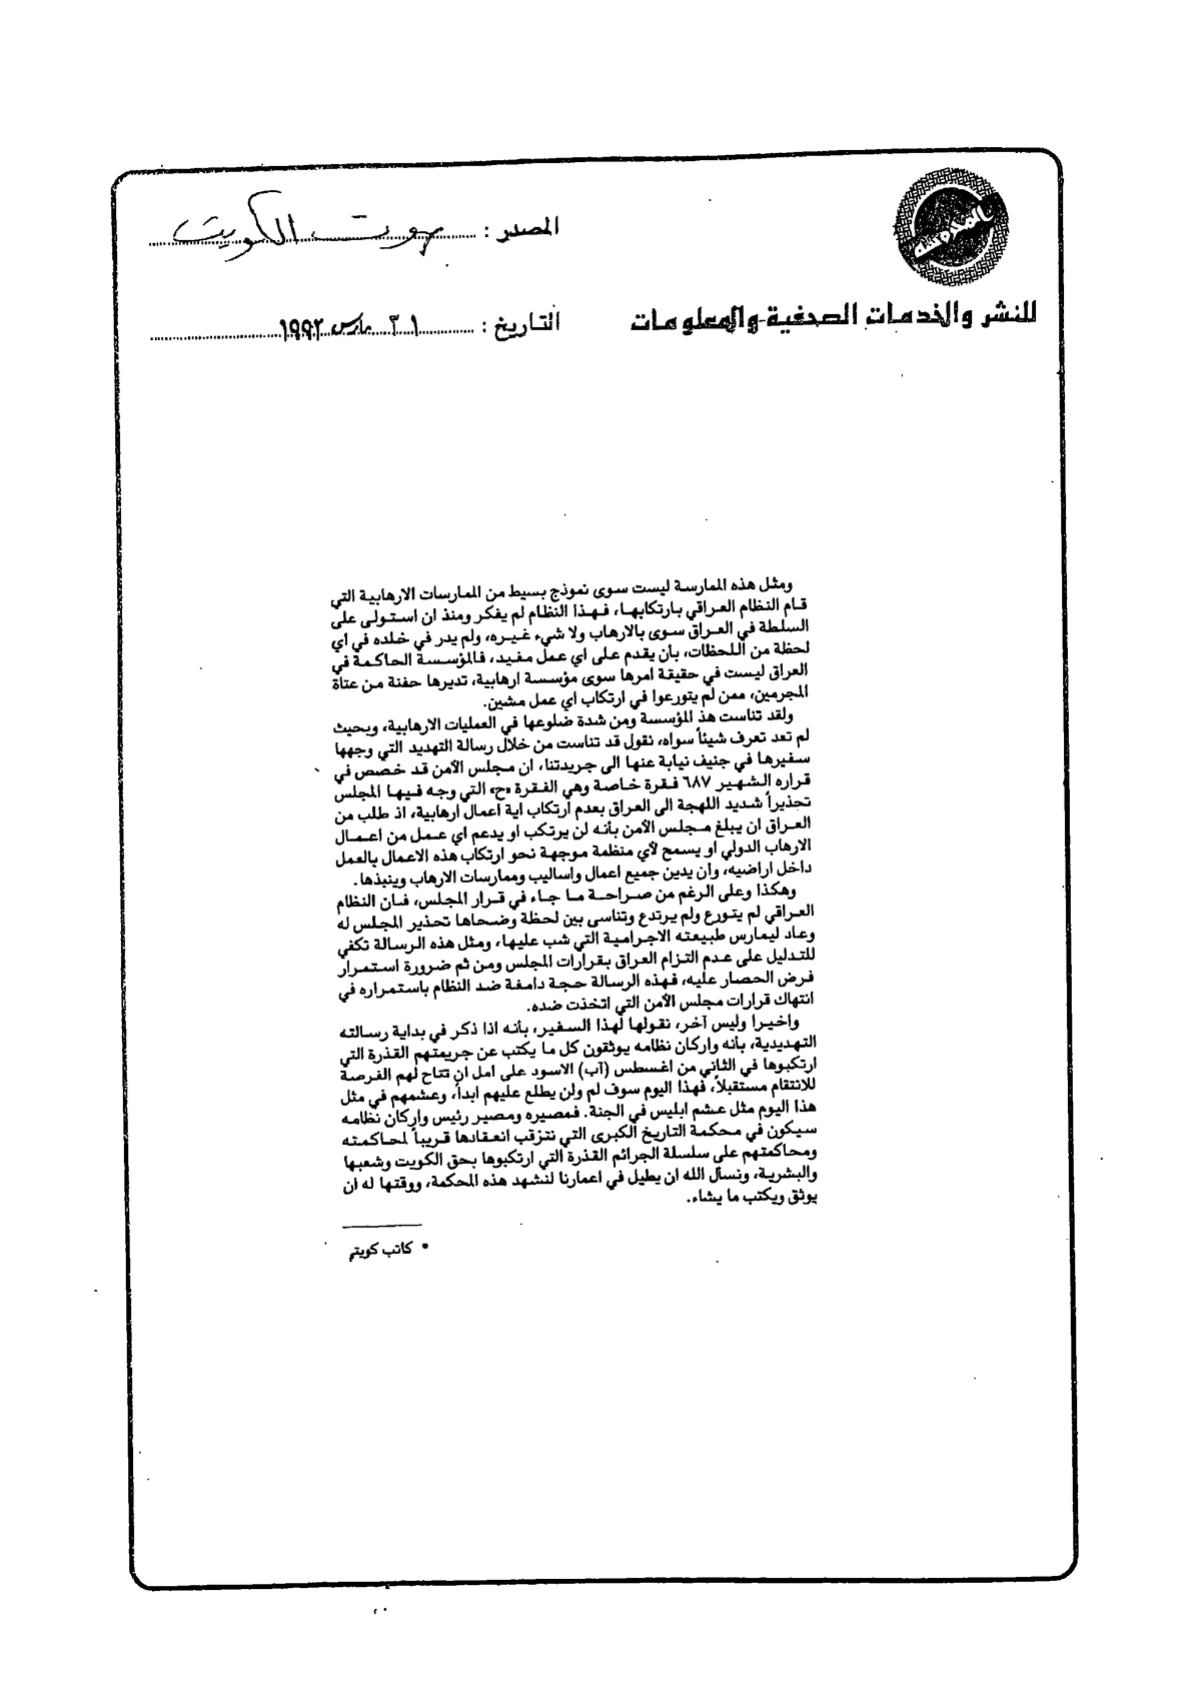 المصدر : صوت الكويت
للنشر والخدمات الصحفية والمعلومات
التاريخ : ٣١ مارس ١٩٩٢
ومثل هذه الممارسة ليست سوى نموذج بسيط من الممارسات الارهابية التي
قام النظام العراقي بارتكابها، فهذا النظام لم يفكر ومنذ ان استولى على
السلطة في العراق سوى بالارهاب ولا شيء غيره، ولم يدر في خلده في اي
لحظة من اللحظات، بأن يقدم على اي عمل مفيد، فالمؤسسة الحاكمة في
العراق ليست في حقيقة امرها سوى مؤسسة ارهابية، تديرها حفنة من عتاة
المجرمين، ممن لم يتورعوا في ارتكاب اي عمل مشين.
ولقد تناست هذ المؤسسة ومن شدة ضلوعها في العمليات الارهابية، وبحيث
لم تعد تعرف شيئاً سواه، نقول قد تناست من خلال رسالة التهديد التي وجهها
سفيرها في جنيف نيابة عنها الى جريدتنا، ان مجلس الأمن قد خصص في
قراره الشهير ٦٨٧ فقرة خاصة وهي الفقرة «ح» التي وجه فيها المجلس
تحذيراً شديد اللهجة الى العراق بعدم ارتكاب اية اعمال ارهابية، اذ طلب من
العراق ان يبلغ مجلس الأمن بأنه لن يرتكب او يدعم اي عمل من اعمال
الارهاب الدولي او يسمح لأي منظمة موجهة نحو ارتكاب هذه الاعمال بالعمل
داخل اراضيه، وان يدين جميع اعمال واساليب وممارسات الارهاب وينبذها.
وهكذا وعلى الرغم من صراحة ما جاء في قرار المجلس، فان النظام
العراقي لم يتورع ولم يرتدع وتناسى بين لحظة وضحاها تحذير المجلس له
وعاد ليمارس طبيعته الاجرامية التي شب عليها، ومثل هذه الرسالة تكفي
للتدليل على عدم التزام العراق بقرارات المجلس ومن ثم ضرورة استمرار
فرض الحصار عليه، فهذه الرسالة حجة دامغة ضد النظام باستمراره في
انتهاك قرارات مجلس الأمن التي اتخذت ضده.
واخيرا وليس آخر، نقولها لهذا السفير، بأنه اذا ذكر في بداية رسالته
التهديدية، بأنه واركان نظامه يوثقون كل ما يكتب عن جريمتهم القذرة التي
ارتكبوها في الثاني من اغسطس (آب) الاسود على امل ان تتاح لهم الفرصة
للانتقام مستقبلاً، فهذا اليوم سوف لم ولن يطلع عليهم ابداً، وعشمهم في مثل
هذا اليوم مثل عشم ابليس في الجنة. فمصيره ومصير رئيس واركان نظامه
سيكون في محكمة التاريخ الكبرى التي نترقب انعقادها قريباً لمحاكمته
ومحاكمتهم على سلسلة الجرائم القذرة التي ارتكبوها بحق الكويت وشعبها
والبشرية، ونسأل الله ان يطيل في اعمارنا لنشهد هذه المحكمة، ووقتها له ان
يوثق ويكتب ما يشاء.
• كاتب كويتي